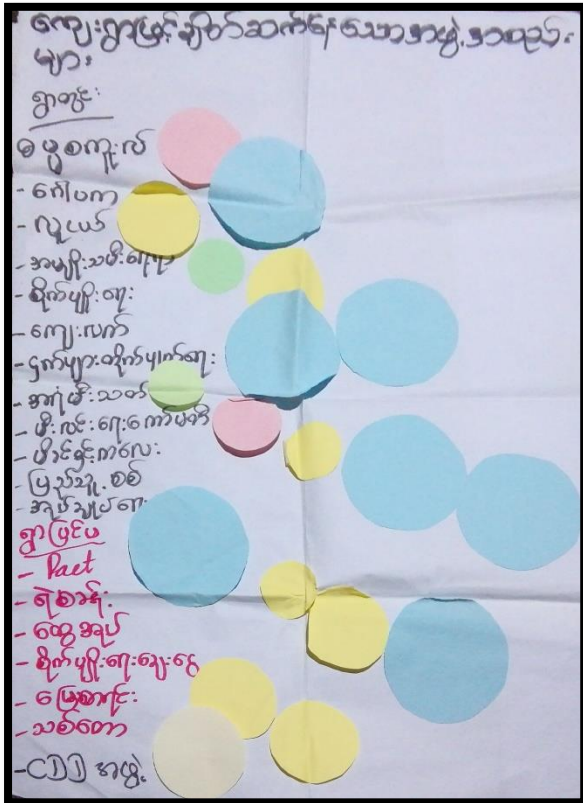 ကျေးရွာဖြင့်ချိတ်ဆက်နေသောအဖွဲ့အစည်း
များ
ရွာတွင်း
ဓမ္မစကူးလ်
- ဂေါပက
- လူငယ်
- အမျိုးသမီးရေးရာ
- စိုက်ပျိုးရေး
- ကျေးလက်
- ငှက်ဖျားတိုက်ဖျက်ရေး
- အရံမီးသတ်
- မီးလင်းရေးကော်မတီ
- မိခင်နှင့်ကလေး
- ပြည်သူ့စစ်
- အုပ်ချုပ်ရေး
ရွာပြင်ပ
- Pact
- ရဲစခန်း
- ထွေအုပ်
- စိုက်ပျိုးရေးချေးငွေ
- မြေစာရင်း
- သစ်တော
- CDD အဖွဲ့